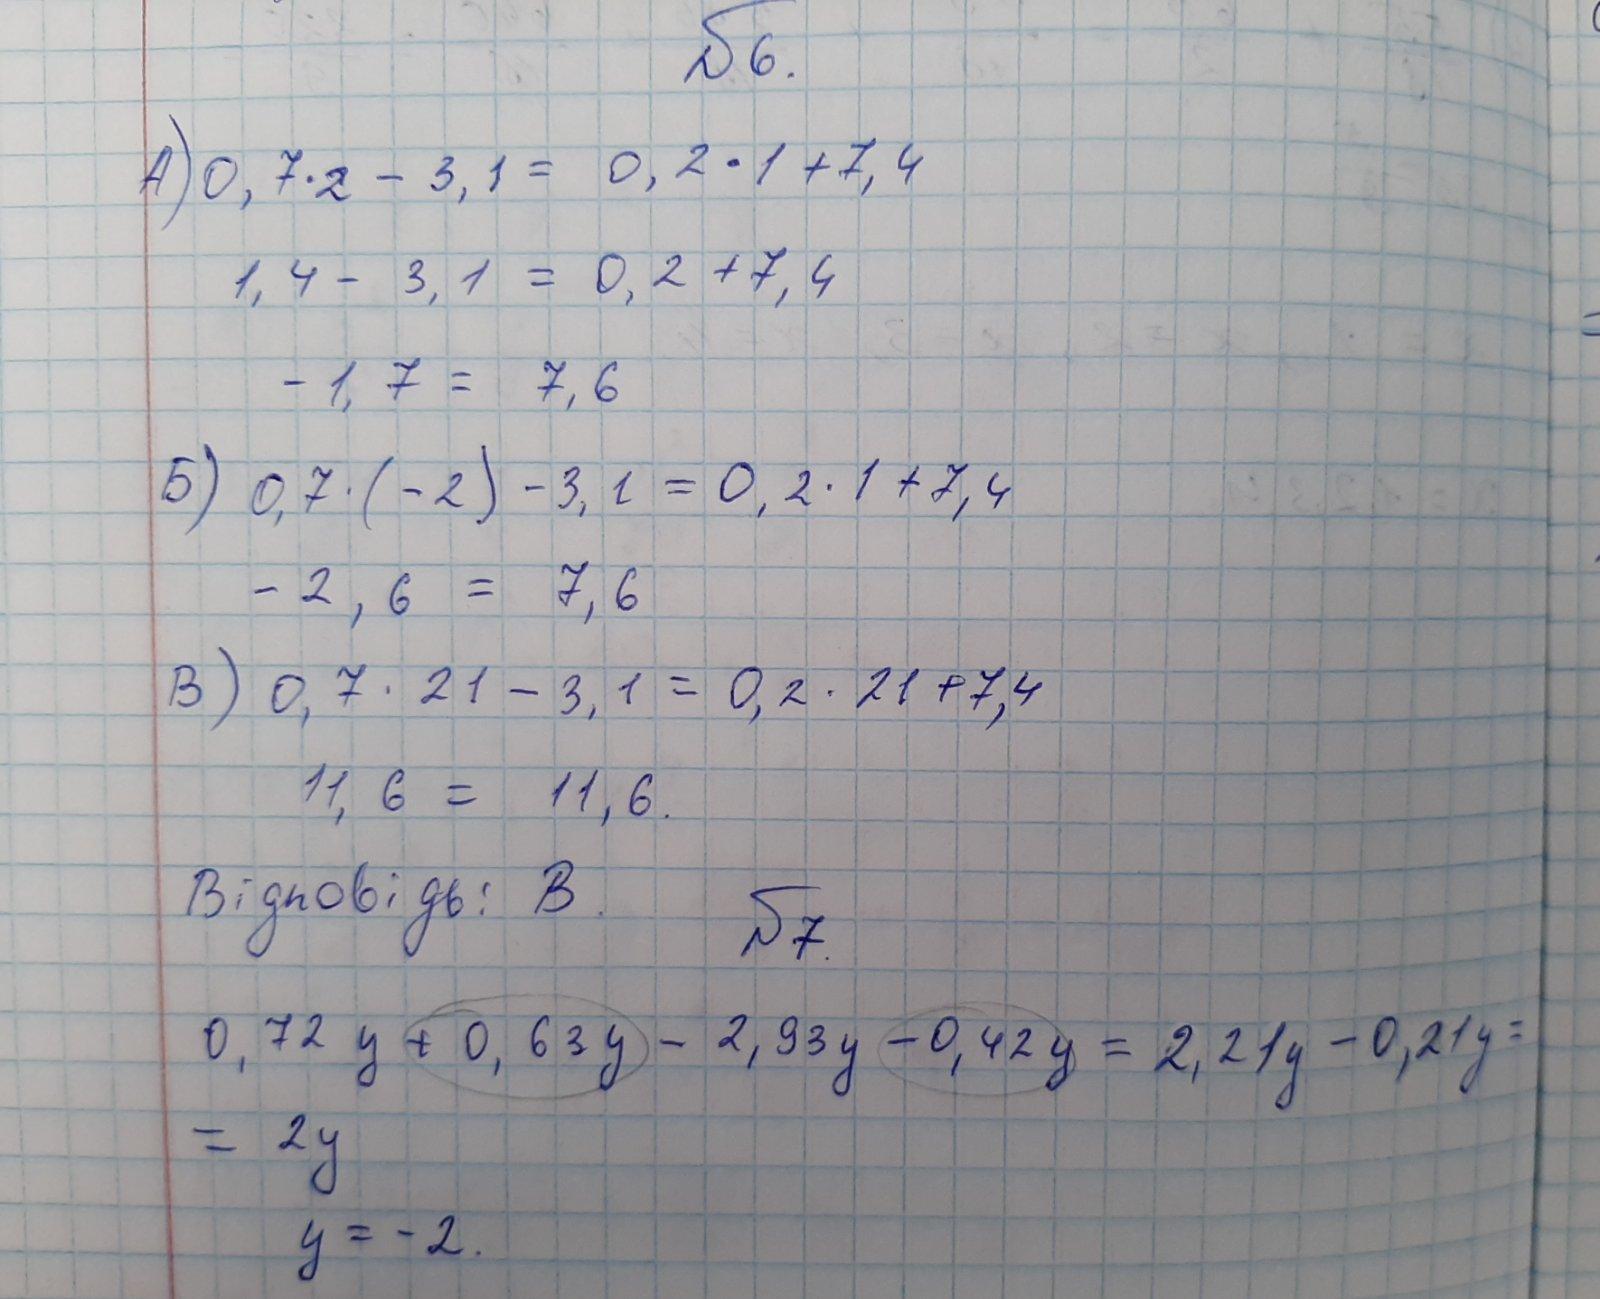 №6.
А) 0,7·2 - 3,1 = 0,2·1 + 7,4
1,4 - 3,1 = 0,2 + 7,4
-1,7 = 7,6
Б) 0,7·(-2) - 3,1 = 0,2·1 + 7,4
-2,6 = 7,6
В) 0,7·21 - 3,1 = 0,2·21 + 7,4
11,6 = 11,6.
Відповідь: В.
№7.
0,72y + 0,63y - 2,93y - 0,42y = 2,21y - 0,21y =
= 2y
y = -2.